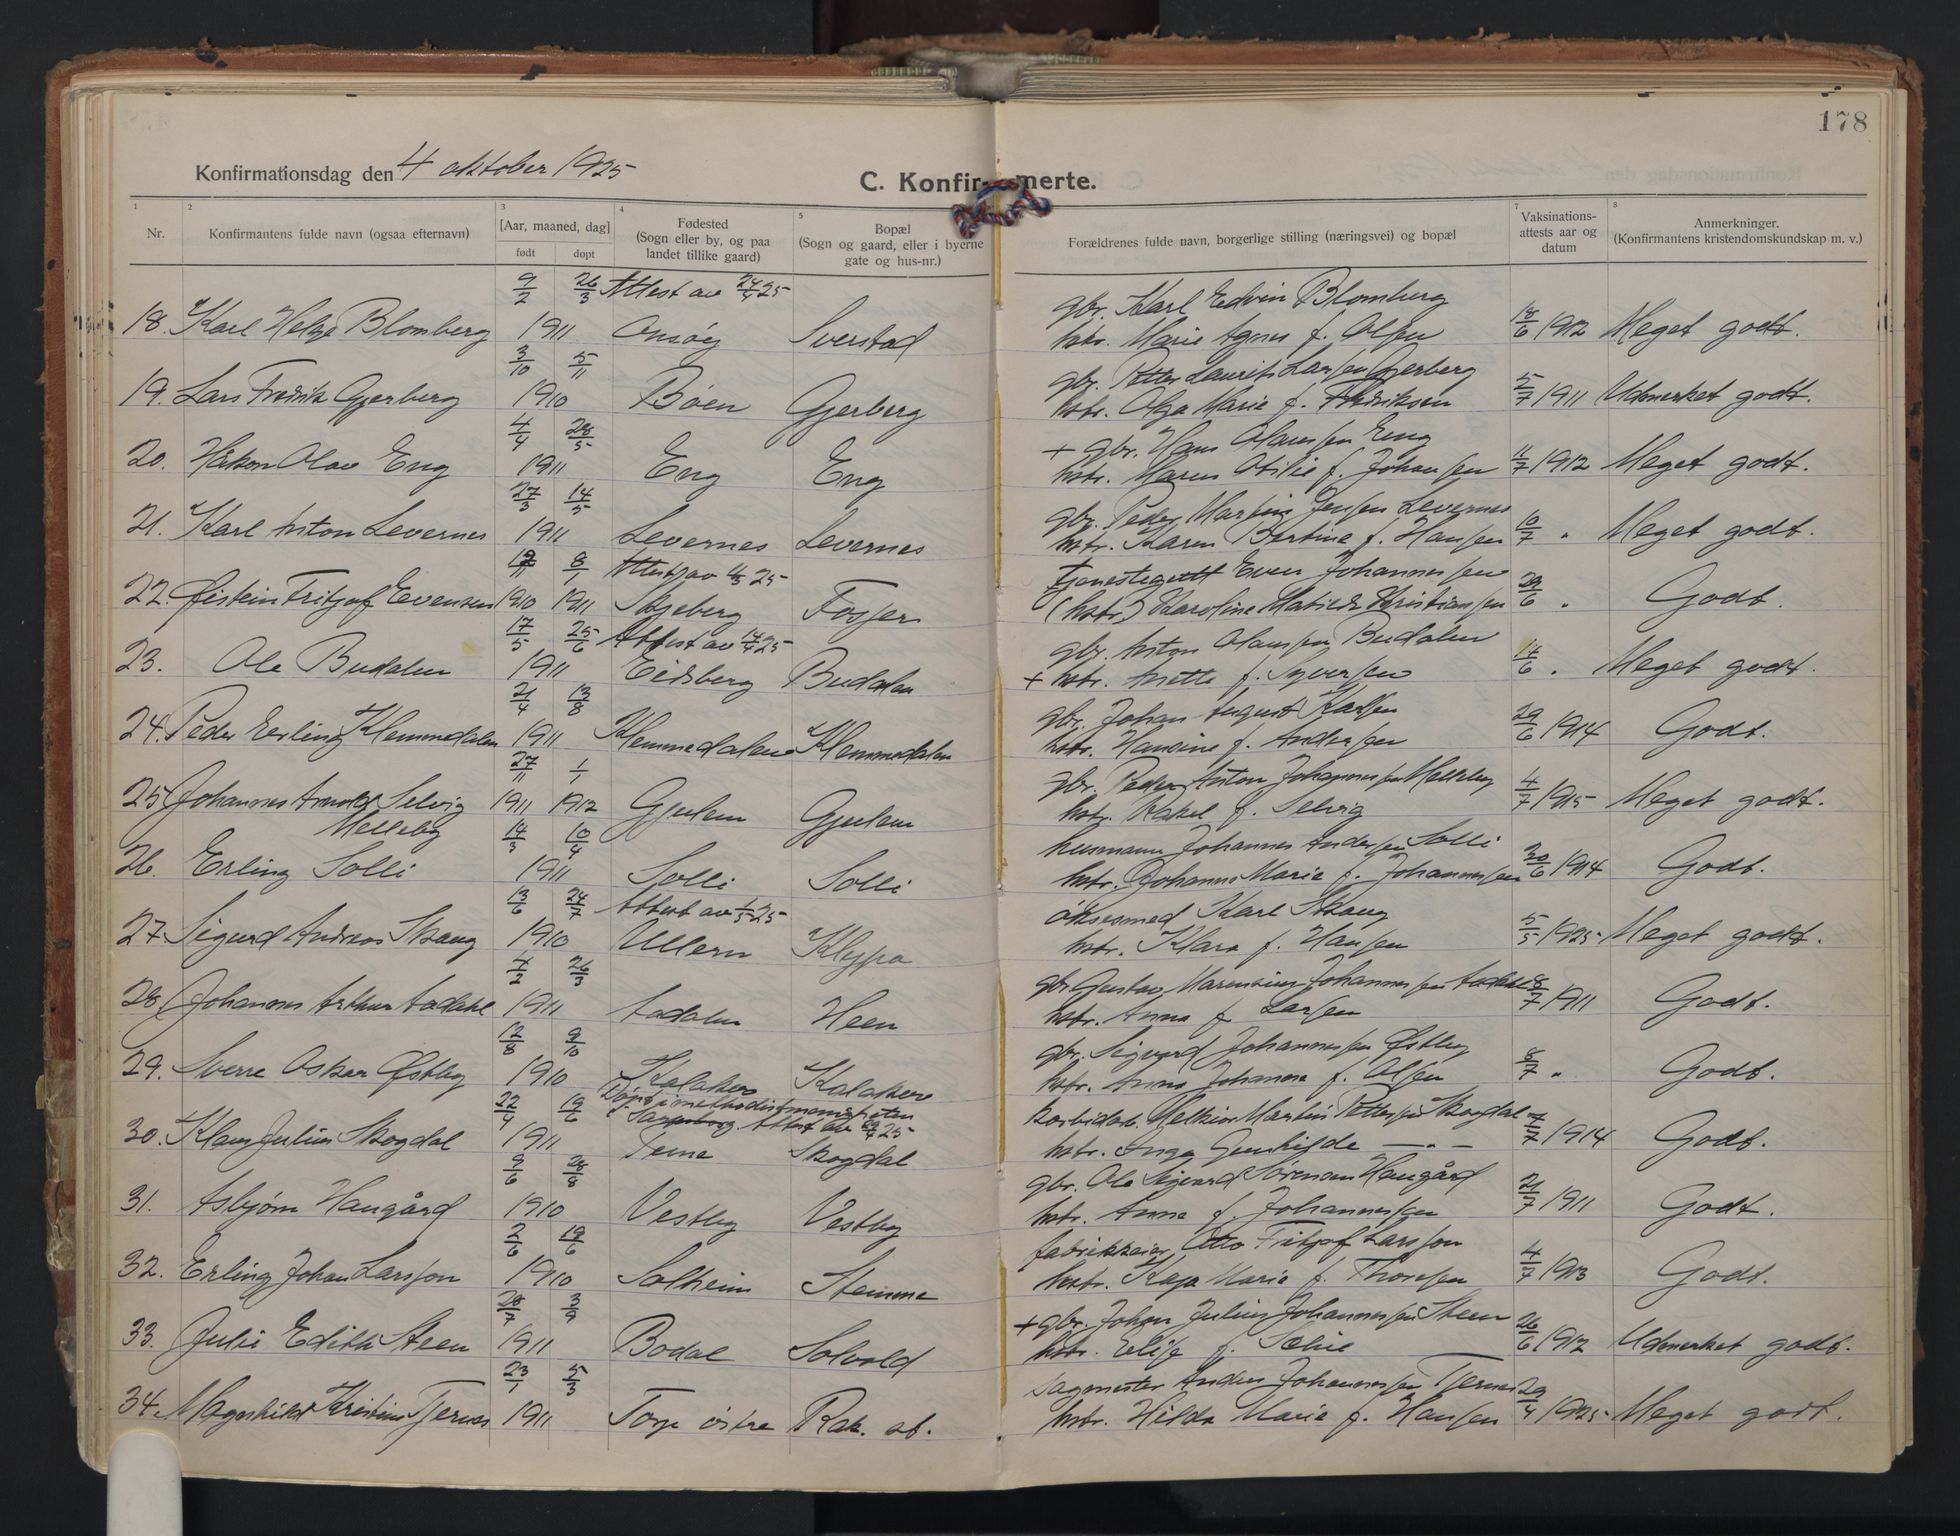 178
Konfirmationsdag den 4 oktober 1925
C. Konfir- merte.
1 2 3 4 5 7 8
Nr. Konfirmantens fulde navn (ogsaa efternavn) [Aar, maaned, dag] født døpt Fødested (Sogn eller by, og paa landet tillike gaard) Bopæl (Sogn og gaard, eller i byerne gate og hus-nr.) Forældrenes fulde navn, borgerlige stilling (næringsvei) og bopæl Vaksinations-attests aar og datum Anmerkninger. (Konfirmantens kristendomskundskap m. v.)
9/2 26/3 Attest av 24/4 25 gbr. Karl Edvin Blomberg
18. Karl Helge Blomberg 1911 Onsøy Sverstad hstr. Marie Agnes f. Olsen 18/6 1912 Meget godt.
3/10 5/11 gbr. Petter Laurits Larsen Gjerberg
19. Lars Fredrik Gjerberg 1910 Bøen Gjerberg hstr. Olga Marie f. Fredriksen 5/7 1911 Udmerket godt.
4/4 28/5 + gbr. Hans Olaussen Eng
20. Håkon Olav Eng 1911 Eng Eng hstr. Maren Otilie f. Johansen 11/7 1912 Meget godt.
27/3 14/5 gbr. Peder Martin Jensen Levernes
21. Karl Anton Levernes 1911 Levernes Levernes hstr. Karen Bertine f. Hansen 10/7 " Meget godt.
8/1 Attest av 4/3 25 Tjenestegutt Even Johannessen
22. Øistein Fritjof Evensen 1910 1911 Skjeberg Fosser (hstr.) Karoline Matilde Kristiansen 29/6 " Godt.
17/5 25/6 Attest av 14/4 25 gbr. Anton Olaussen Budalen
23. Ole Budalen 1911 Eidsberg Budalen + hstr. Anette f. Syversen 14/6 " Meget godt.
21/4 13/8 gbr. Johan August Karlsen
24. Peder Erling Klemmedalen 1911 Klemmedalen Klemmedalen hstr. Hansine f. Andersen 29/6 1914 Godt.
27/11 1/1 gbr. Peder Anton Johannessen Melleby
25. Johannes Arnold Selvig 1911 1912 Gjulem Gjulem hstr. Rakel f. Selvig 4/7 1915 Meget godt.
Melleby 14/3 10/4 husmann Johannes Andersen Solli
26. Erling Solli 1911 Solli Solli hstr. Johanne Marie f. Johannessen 30/6 1914 Godt.
13/6 24/7 Attest av 1/5 25 øksesmed Karl Skaug
27. Sigurd Andreas Skaug 1910 Ullern Klypa hstr. Klara f. Hansen 5/5 1925 Meget godt.
4/2 26/3 gbr. Gustav Marensius Johannessen Aadalen
28. Johannes Arthur Aadalen 1911 Aadalen Heen hstr. Anna f. Larsen 8/7 1911 Godt.
12/8 9/10 gbr. Sigvard Johannessen Østby
29. Sverre Oskar Østby 1910 Kolakers Kolakers hstr. Anna Johanne f. Olsen 8/7 " Godt.
22/4 19/6 Døpt i methodistmenigheten karbidarb. Melkior Martin Pettersen Skogdal
i Sarpsborg. Attest av 25
30. Klaus Julius Skogdal 1911 Tune Skogdal hstr. Inga Gunhilde — " — 1914 Godt.
9/6 28/8 gbr. Ole Sigvard Sørensen Haugård
31. Asbjørn Haugård 1910 Vestby Vestby hstr. Anna f. Johannessen 21/7 1911 Godt.
2/6 19/6 fabrikkeier Otto Fritjof Larsson
32. Erling Johan Larsson 1910 Solheim Stemme hstr. Kaja Marie f. Thoresen 4/7 1913 Godt.
28/7 3/9 + gbr. Johan Julius Johannessen Steen
33. Julie Edith Steen 1911 Bodal Solvold hstr. Elise f. Sælie 26/6 1912 Udmerket godt.
23/1 5/3 Sagmester Anders Johannessen Tjernes
34. Magnhild Kristine Tjernes 1911 Torp østre Rak. st. hstr. Hilda Marie f. Hansen 29/4 1925 Meget godt.